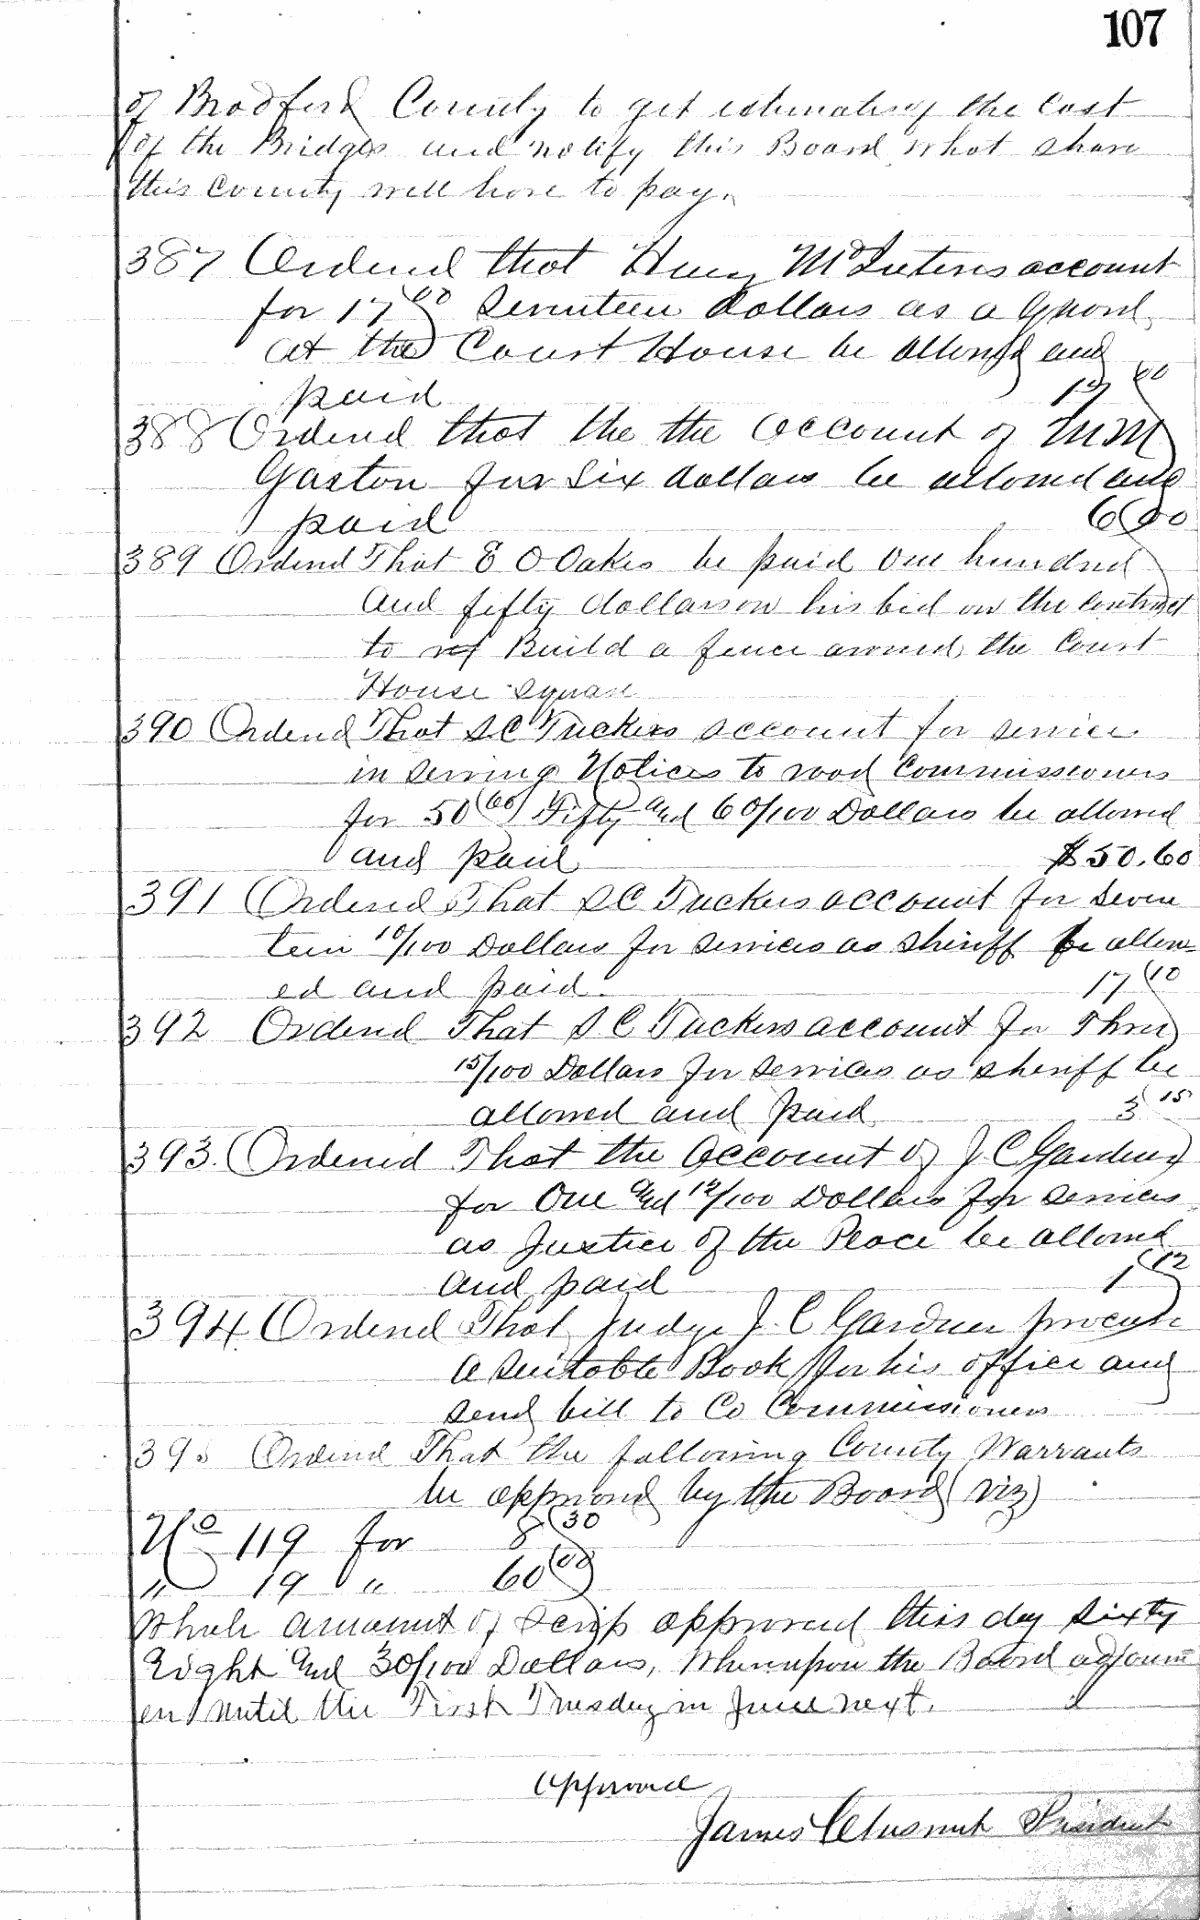 107
of Bradford County to get estimates of the Cost
of the Bridges and notify this Board what share
this County will have to pay.
387 Ordered that Henry account
for 17 00 Seventeen dollars as a Guard
at the Court House be allowed and
paid 17 00
388 Ordered that the the account of
Gaston for Six dollars be allowed and
paid 6 00
389 Ordered That E O Oakes be paid One hundred
and fifty dollars on his bid on the Contract
to Build a fence around the Court
House square
390 Ordered That S C Tuckers account for services
in serving Notices to road Commissioners
for 50 60 Fifty and 60/100 Dollars be allowed
and paid $50.60
391 Ordered That S C Tuckers account for Seven
teen 10/100 Dollars for services as sheriff be allow-
ed and paid. 17 10
392 Ordered That S C Tuckers account for Three
15/100 Dollars for services as sheriff be
allowed and paid 3 15
393. Ordered That the Account of J C Gardner
for One and 12/100 Dollars for services
as Justice of the Peace be allowed
and paid 1 12
394 Ordered That Judge J. C Gardner procure
a suitable Book for his office and
send bill to Co Commissioners
395 Ordered That the following County Warrants
be approved by the Board (viz)
No 119 for 8 30
" 19 " 60 00
Whole amount of Scrip approved this day sixty
Eight and 30/100 Dollars, Whereupon the Board adjourn
ed until the First Tuesday in June next.
Approved
James President